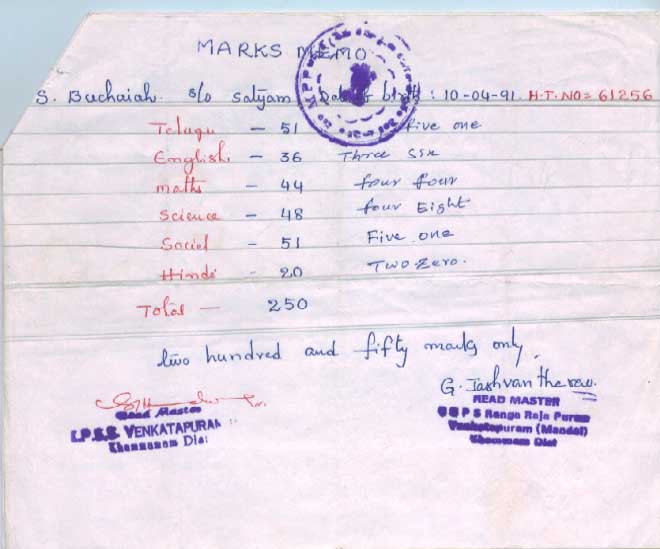 MARKS MEMO
S. Buchaiah. s/o Satyam Date of birth : 10-04-91. H.T.NO = 61256
Telugu - 51 Five one
English - 36 Three six
maths - 44 four four
Science - 48 four Eight
Social - 51 Five one
Hindi - 20 Two Zero.
Total - 250
two hundred and fifty marks only.
G. Jashvantharao.
Head Master
VENKATAPURAM
Khammam Dist
HEAD MASTER
P S Ranga Raja Puram
Venkatapuram (Mandal)
Khammam Dist